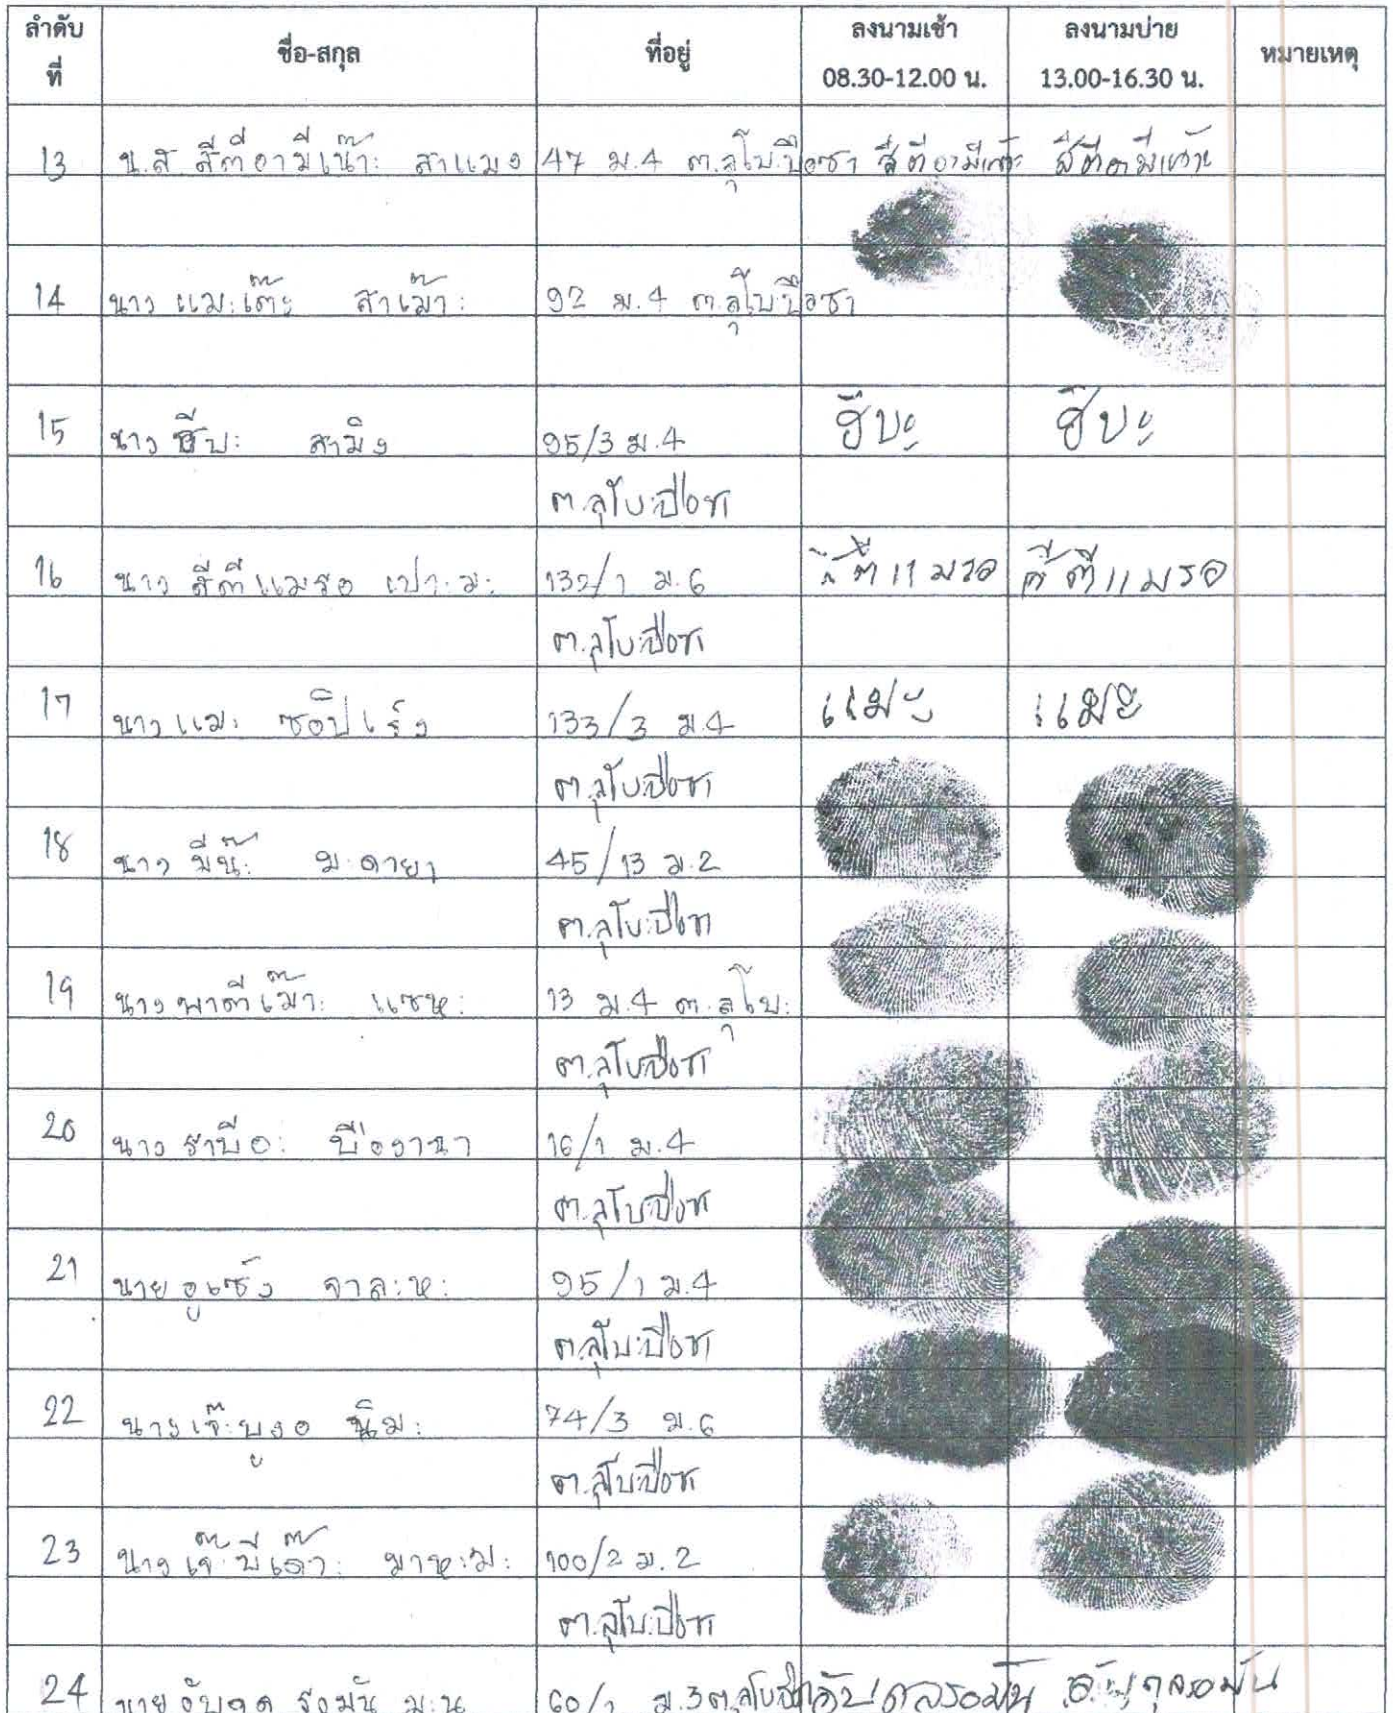 ลำดับที่ ชื่อ-สกุล ที่อยู่ ลงนามเช้า 08.30-12.00 น. ลงนามบ่าย 13.00-16.30 น. หมายเหตุ
13 น.ส. สีตีอามีเน๊าะ สาแมง 47 ม.4 ต.ลุโบะบือซา สีตีอามีเน๊าะ สีตีอามีเน๊าะ
14 นาง แมะเต๊ะ สาเม๊าะ 92 ม.4 ต.ลุโบะบือซา
15 นาง ฮีบะ สามิง 95/3 ม.4 ฮีบะ ฮีบะ
ต.ลุโบะบือซา
16 นาง สีตีแมรอ เปาะมะ 132/1 ม.6 สีตีแมรอ สีตีแมรอ
ต.ลุโบะบือซา
17 นาง แมะ ซอปิเร็ง 133/3 ม.4 แมะ แมะ
ต.ลุโบะบือซา
18 นาง มีน๊ะ มะดายา 45/13 ม.2
ต.ลุโบะบือซา
19 นาง พาตีเม๊าะ แซหะ 13 ม.4 ต.ลุโบะ
ต.ลุโบะบือซา
20 นาง ราบีอะ 16/1 ม.4
ต.ลุโบะบือซา
21 นาย อูเซ็ง จาละหะ 95/1 ม.4
ต.ลุโบะบือซา
22 นาง เจ๊ะบูงอ นิมะ 74/3 ม.6
ต.ลุโบะบือซา
23 นาง เจ๊ะบีเด๊าะ มาหะมะ 100/2 ม.2
ต.ลุโบะบือซา
24 นาย 60/1 ม.3 ต.ลุโบะบือซา